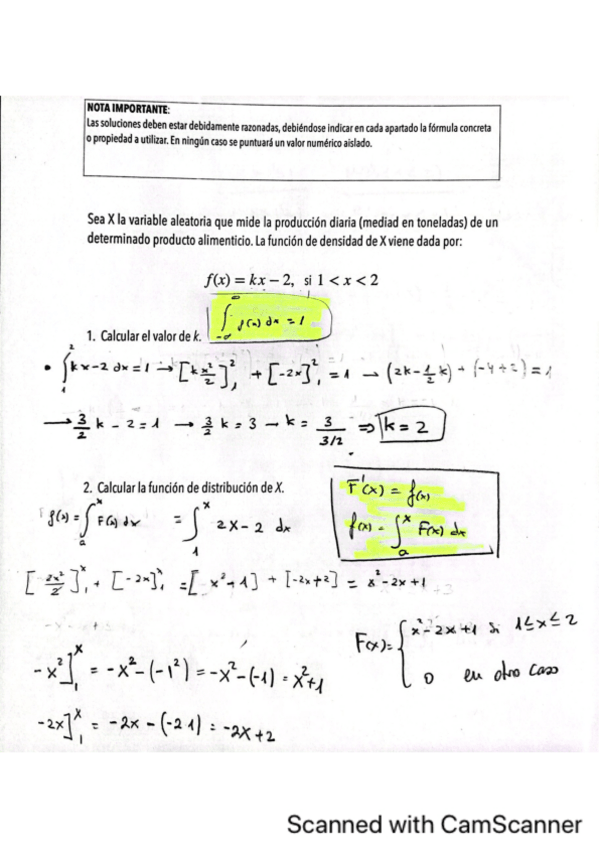 NOTA IMPORTANTE:
Las soluciones deben estar debidamente razonadas, debiéndose indicar en cada apartado la fórmula concreta
o propiedad a utilizar. En ningún caso se puntuará un valor numérico aislado.
Sea X la variable aleatoria que mide la producción diaria (mediad en toneladas) de un
determinado producto alimenticio. La función de densidad de X viene dada por:
f(x) = kx − 2, si 1 < x < 2
1. Calcular el valor de k.
∫_{-∞}^{∞} f(x) dx = 1
• ∫_1^2 kx-2 dx = 1 → [kx²/2]_1^2 + [-2x]_1^2 = 1 → (2k - 1/2 k) + (-4+2) = 1
→ 3/2 k - 2 = 1 → 3/2 k = 3 → k = 3/(3/2) ⇒ k = 2
2. Calcular la función de distribución de X.
F'(x) = f(x)
f(x) = ∫_a^x F(x) dx
f(x) = ∫_a^x F(x) dx = ∫_1^x 2x - 2 dx
[2x²/2]_1^x + [-2x]_1^x = [x²+1] + [-2x+2] = x²-2x+1
F(x) = { x²-2x+1 si 1≤x≤2
0 en otro caso
-x²]_1^x = -x²-(-1²) = -x²-(-1) = x²+1
-2x]_1^x = -2x-(-2·1) = -2x+2
Scanned with CamScanner